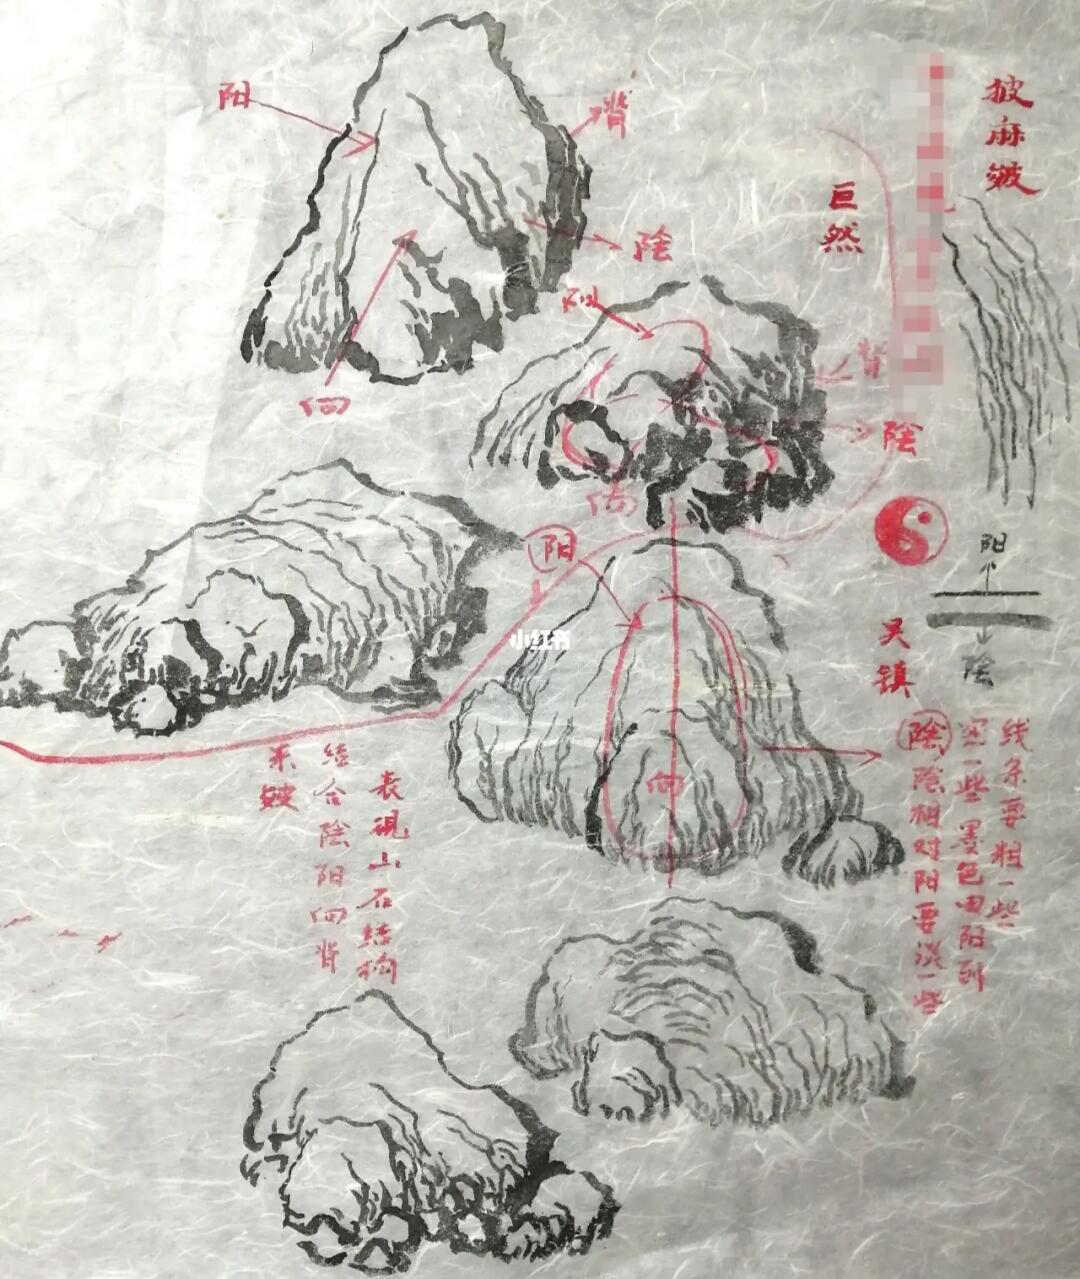 披麻皴
巨然
阳
背
陰
向
阳
背
陰
向
阳
小红书
阳
陰
吴镇
向
线条要粗一些
墨色由阳到
陰陰相对阳要淡一些
表現山石结构
结合陰阳向背
来皴